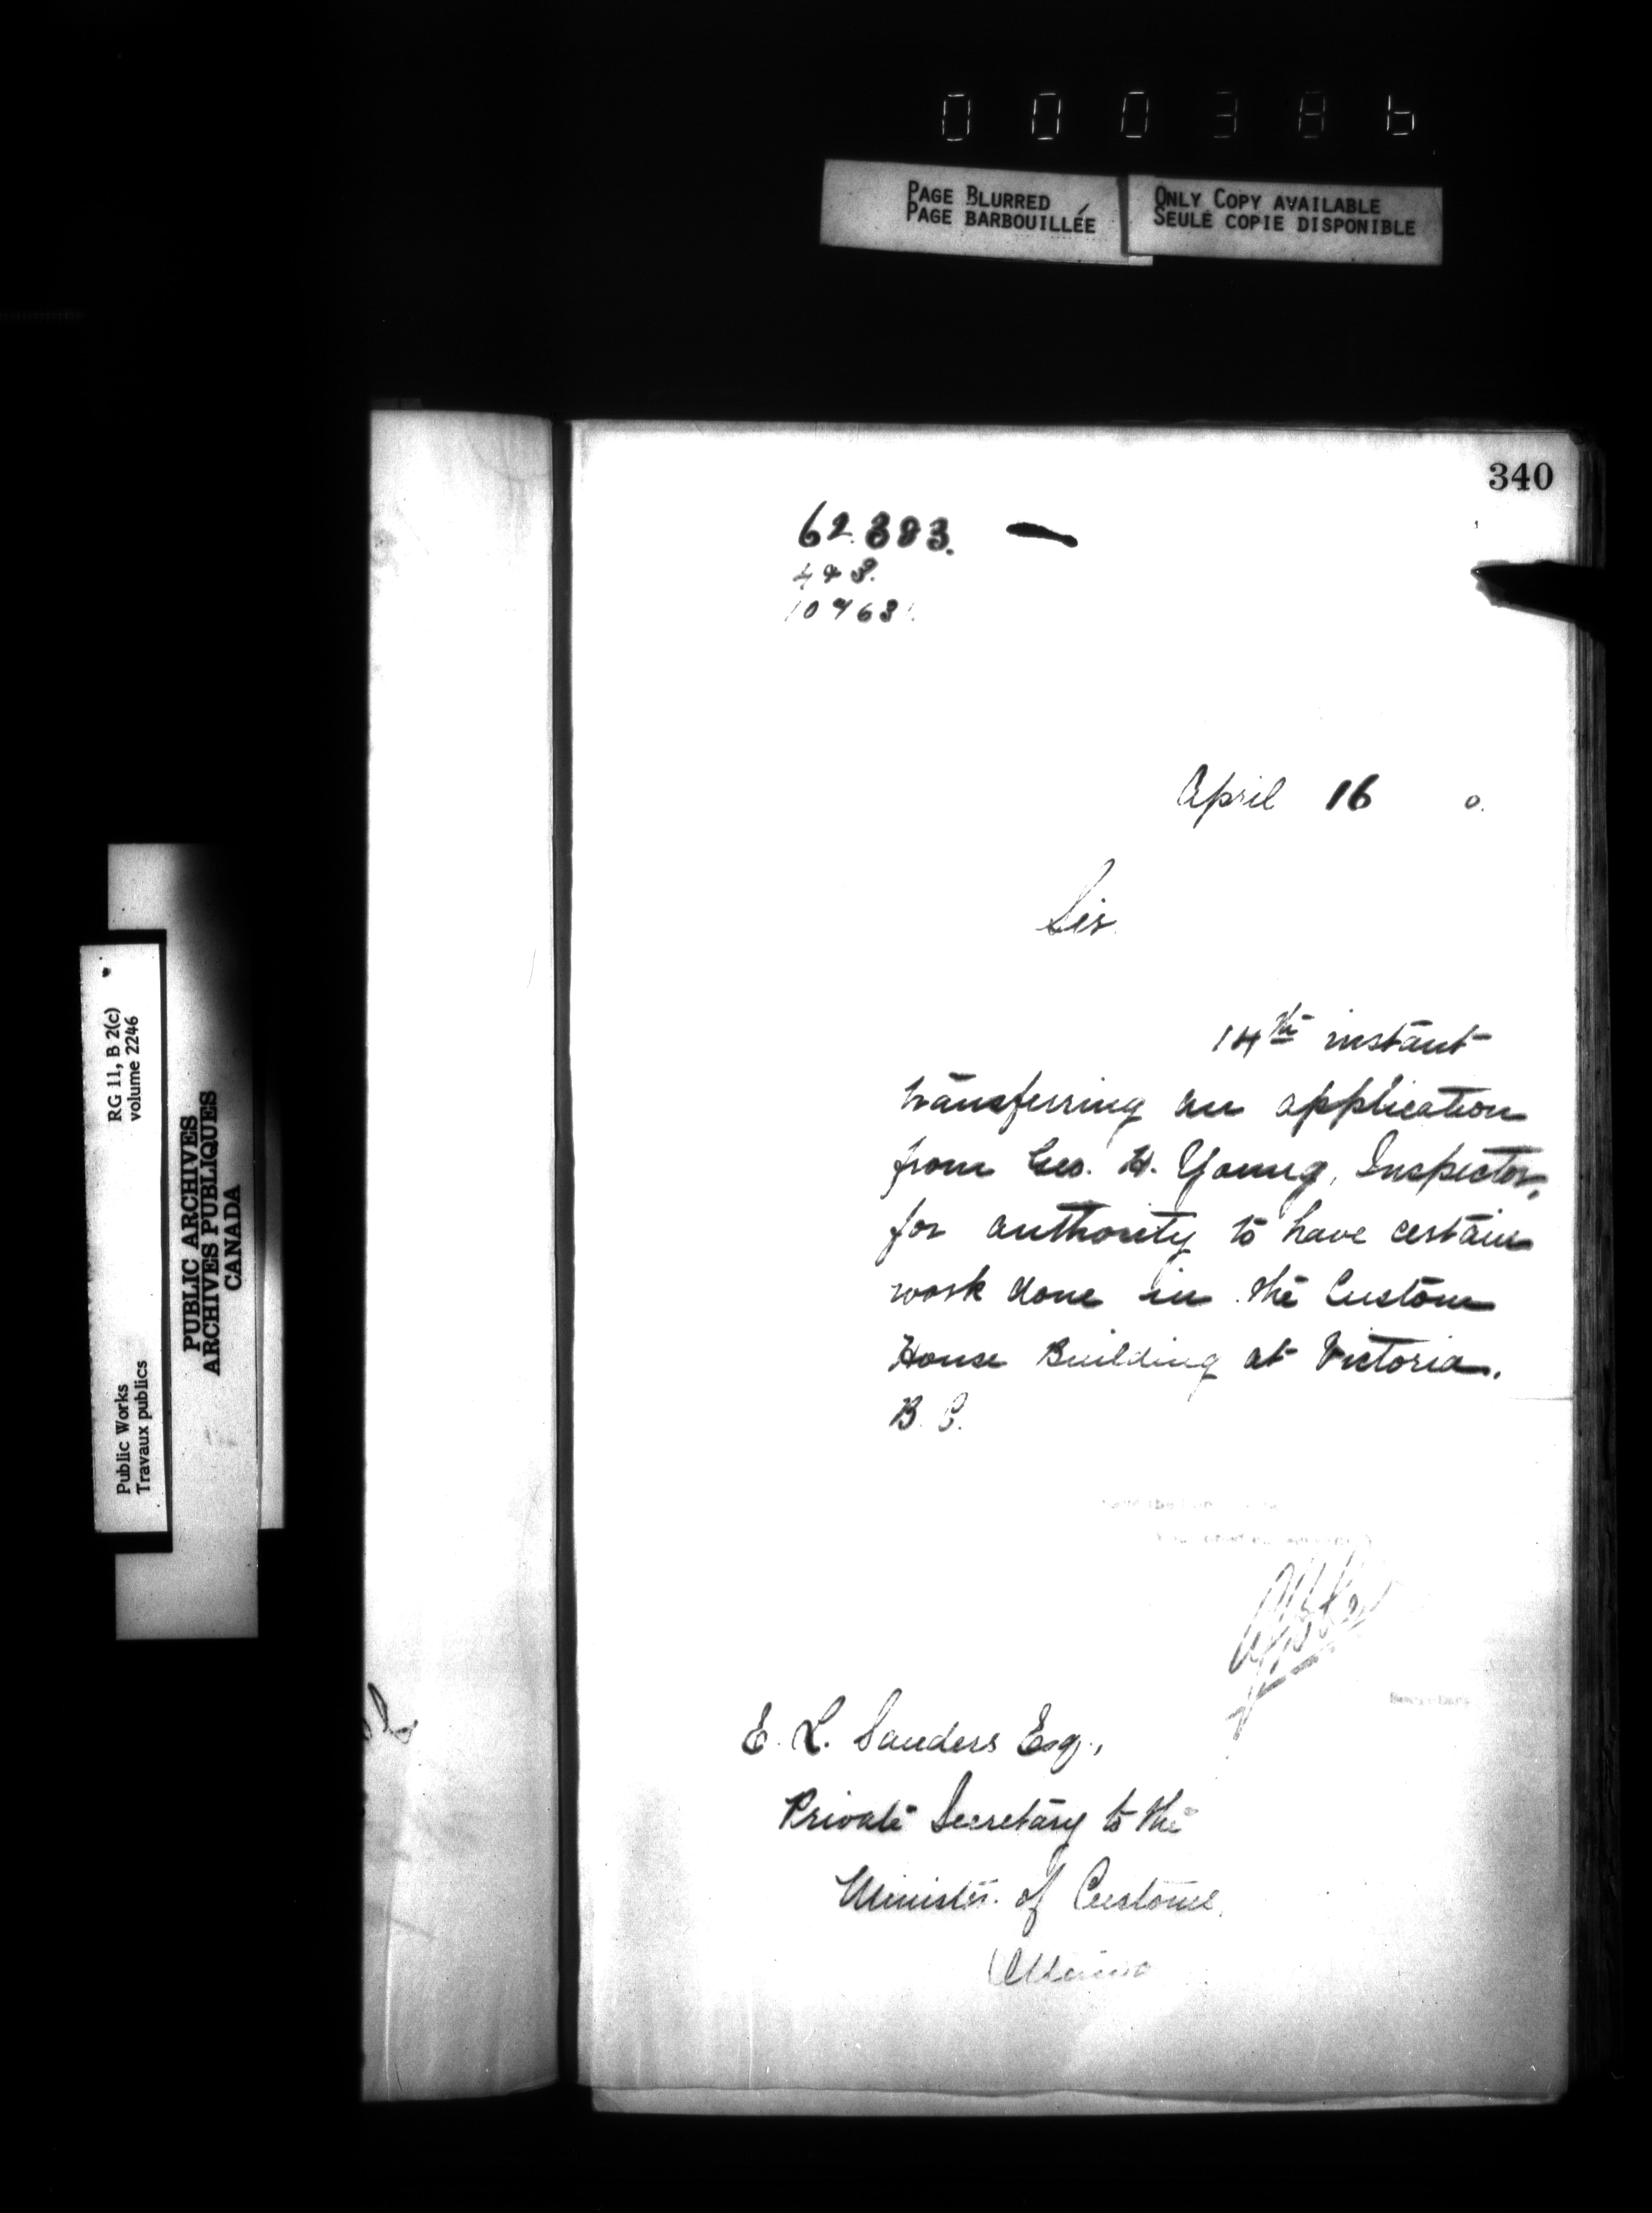 PAGE BLURRED
PAGE BARBOUILLÉE
ONLY COPY AVAILABLE
SEULE COPIE DISPONIBLE
RG 11, B 2(c)
volume 2246
Public Works
Travaux publics
PUBLIC ARCHIVES
ARCHIVES PUBLIQUES
CANADA
340
62.383.
April 16 0.
Sir
14th instant
transferring an application
from Geo. H. Young, Inspector,
for authority to have certain
work done in the Custom
House Building at Victoria,
B. C.
Secretary
E. L. Sanders Esq.,
Private Secretary to the
Minister of Customs.
Ottawa